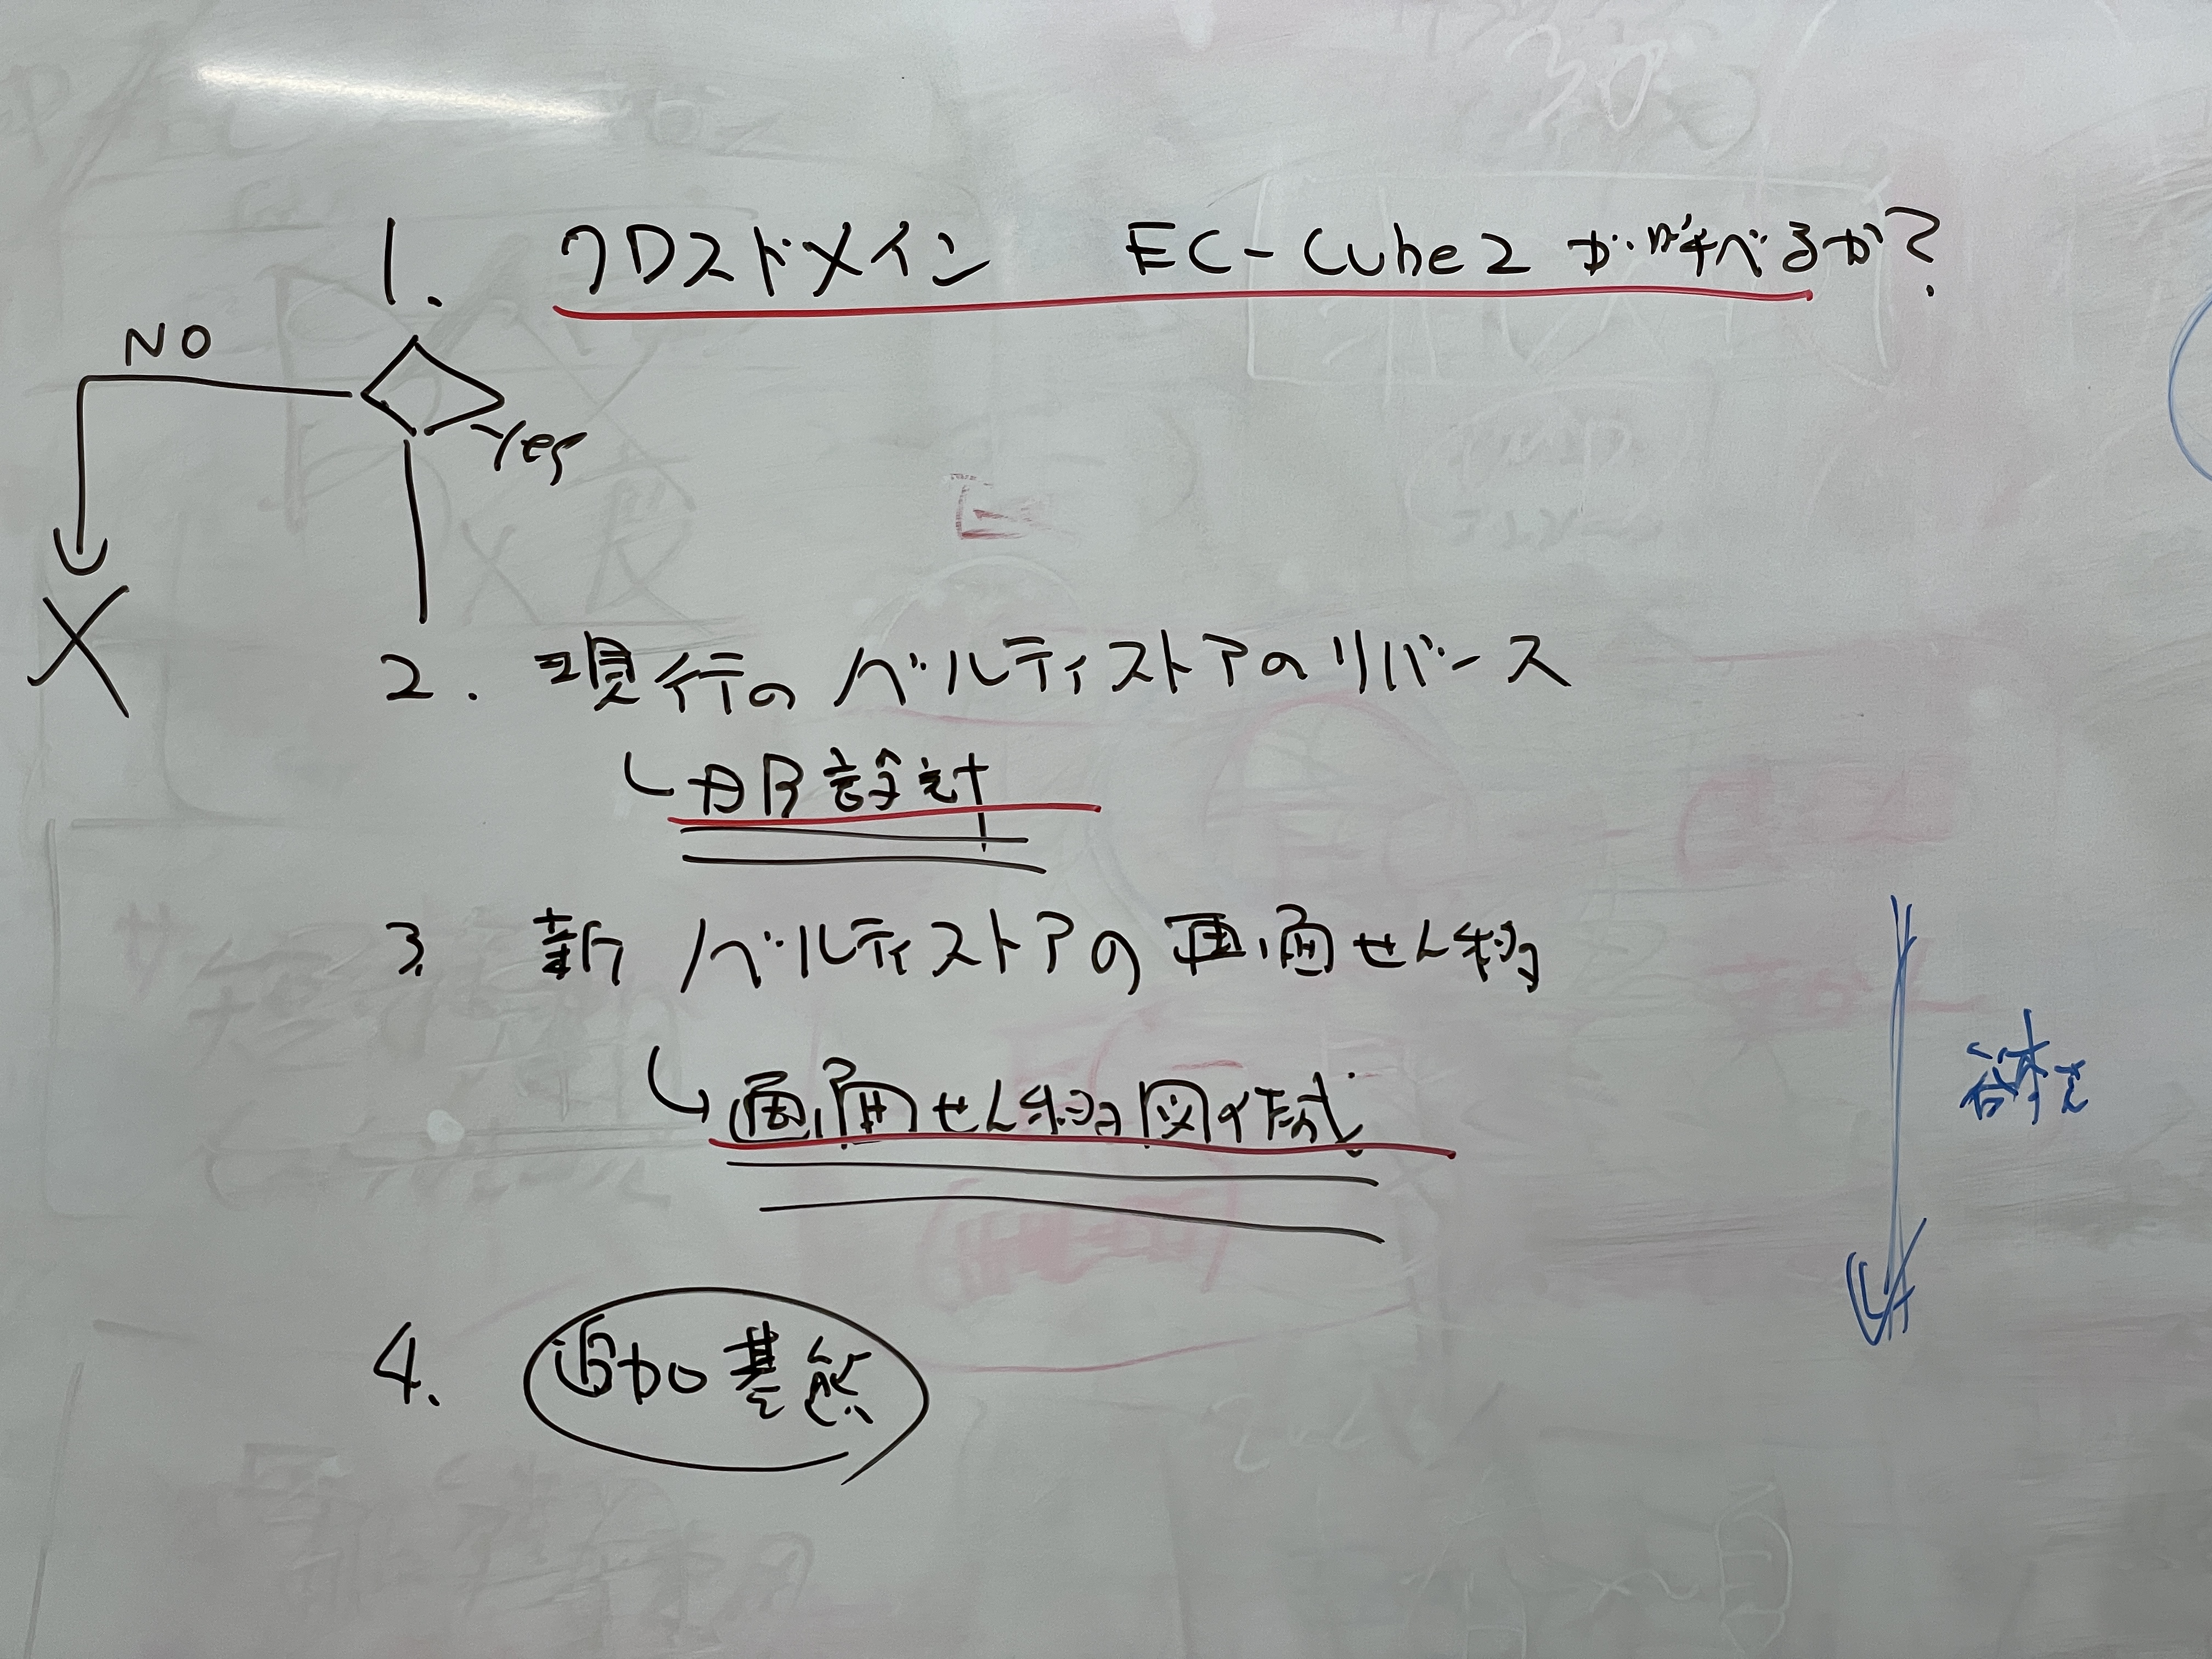 1. クロスドメイン EC-Cube2 が呼べるか?
NO
Yes
X
2. 現行の ベルティストアのリバース
DB設計
3. 新 ベルティストアの画面せん移
画面せん移図作成
4. 追加基態